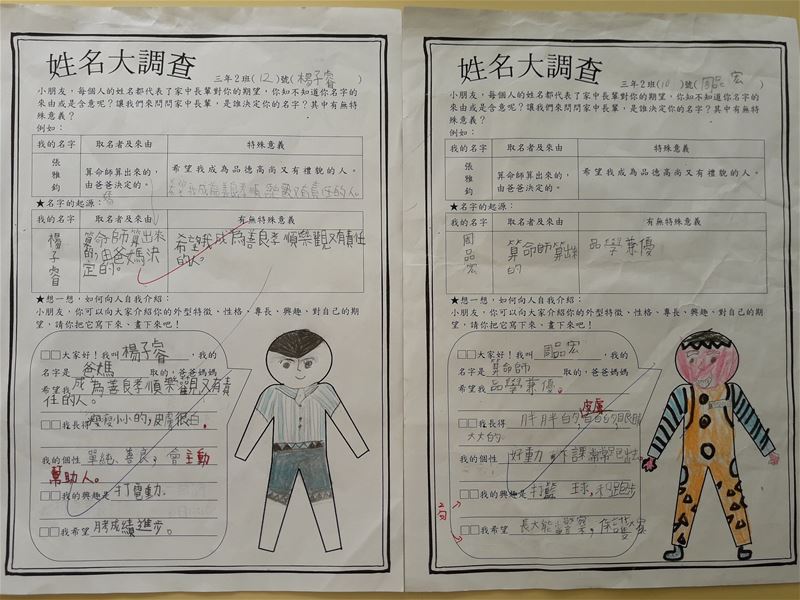 姓名大調查
三年2班(12)號(楊子睿)
小朋友，每個人的姓名都代表了家中長輩對你的期望，你知不知道你名字的
來由或是含意呢？讓我們來問問家中長輩，是誰決定你的名字？其中有無特
殊意義？
例如：
我的名字 取名者及來由 特殊意義
張雅鈞 算命師算出來的，由爸爸決定的。 希望我成為品德高尚又有禮貌的人。
★名字的起源：
我的名字 取名者及來由 有無特殊意義
楊子睿 算命師算出來的，由爸媽決定的。 希望我成為善良孝順樂觀又有責任的人。
★想一想，如何向人自我介紹：
小朋友，你可以向大家介紹你的外型特徵、性格、專長、興趣、對自己的期
望，請你把它寫下來、畫下來吧！
□□大家好！我叫 楊子睿，我的
名字是 爸媽 取的，爸爸媽媽
希望我 成為善良孝順樂觀又有責
任的人。
□□我長得 瘦瘦小小的，皮膚很白。
我的個性 單純、善良，會主動
幫助人。
□□我的興趣是 打電動。
□□我希望 月考成績進步。
姓名大調查
三年2班(10)號(周品宏)
小朋友，每個人的姓名都代表了家中長輩對你的期望，你知不知道你名字的
來由或是含意呢？讓我們來問問家中長輩，是誰決定你的名字？其中有無特
殊意義？
例如：
我的名字 取名者及來由 特殊意義
張雅鈞 算命師算出來的，由爸爸決定的。 希望我成為品德高尚又有禮貌的人。
★名字的起源：
我的名字 取名者及來由 有無特殊意義
周品宏 算命師算出來的 品學兼優
★想一想，如何向人自我介紹：
小朋友，你可以向大家介紹你的外型特徵、性格、專長、興趣、對自己的期
望，請你把它寫下來、畫下來吧！
□□大家好！我叫 周品宏，我的
名字是 算命師 取的，爸爸媽媽
希望我 品學兼優。
皮膚
□□我長得 胖胖的 眼睛
大大的
我的個性 好動 下課常常跑出去。
□□我的興趣是 打籃球，和跑步
□□我希望 長大能當警察，保護大家